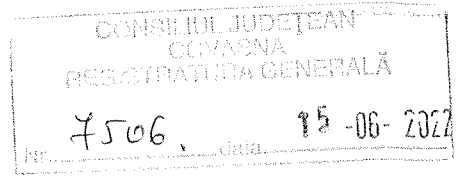 CONSILIUL JUDEȚEAN
COVASNA
REGISTRATURA GENERALĂ
Nr. 7506. data 15-06-2022